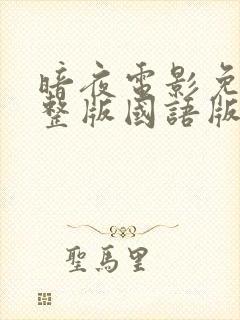 暗夜電影免
整版國語版
聖馬里